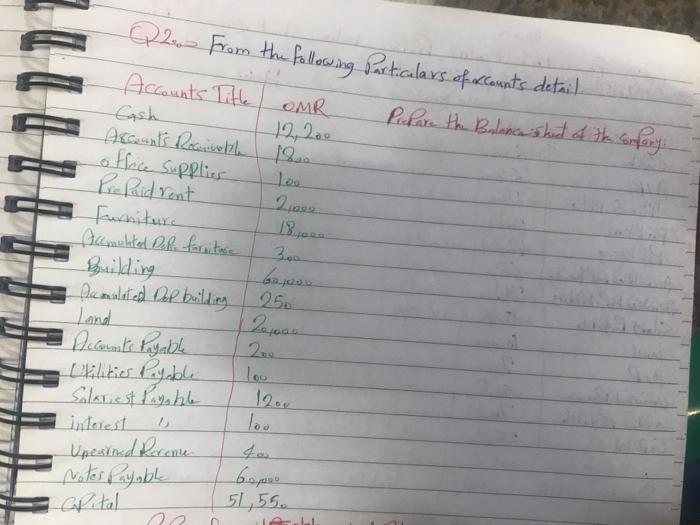 Q2 From the following Particulars of accounts detail
Prepare the Balance sheet of the Company.
Accounts Title OMR
Cash 12,200
Accounts Receivable 1800
office Supplies 100
Prepaid rent 2,000
Furniture 18,000
Accumulated Dep. furniture 300
Building 60,000
Accumulated Dep building 250
Land 20,000
Accounts Payable 200
Utilities Payable 100
Salaries Payable 1200
interest " 100
Unearned Revenue 400
Notes Payable 60,000
Capital 51,550